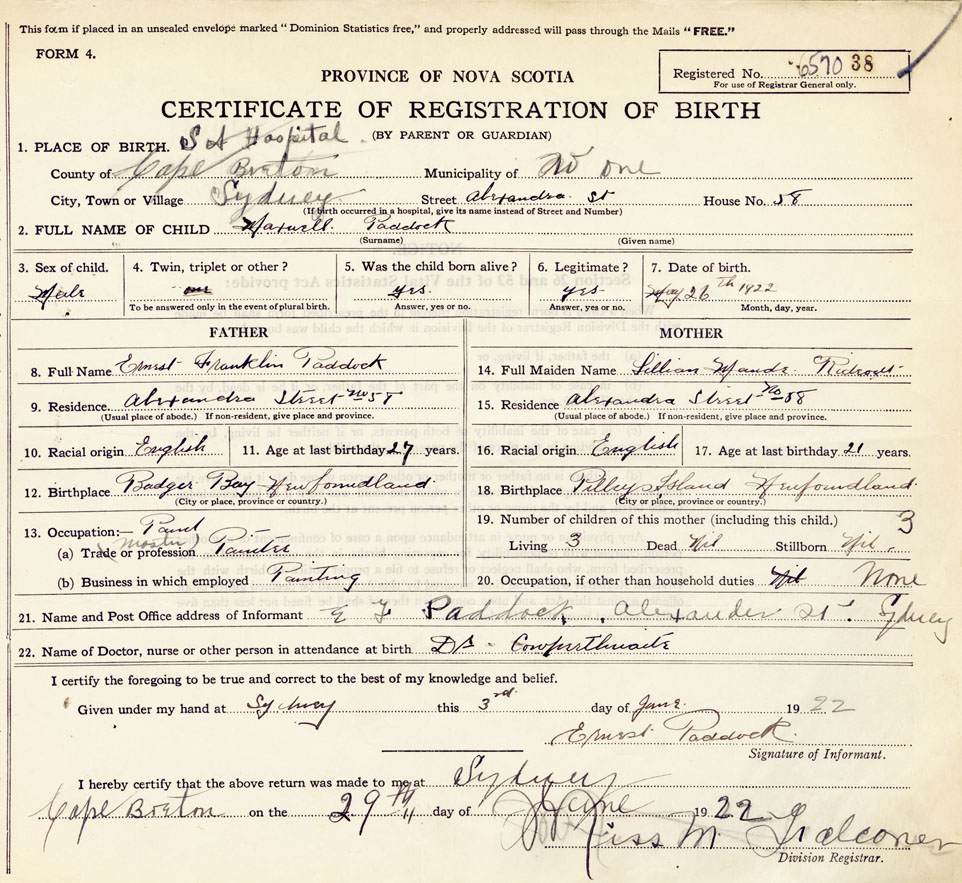 This form if placed in an unsealed envelope marked "Dominion Statistics free," and properly addressed will pass through the Mails "FREE."
FORM 4.
Registered No. 6570 38
For use of Registrar General only.
PROVINCE OF NOVA SCOTIA
CERTIFICATE OF REGISTRATION OF BIRTH
(BY PARENT OR GUARDIAN)
1. PLACE OF BIRTH. S A Hospital
County of Cape Breton Municipality of No one
City, Town or Village Sydney Street Alexandra St House No. 58
(If birth occurred in a hospital, give its name instead of Street and Number)
2. FULL NAME OF CHILD Maxwell Paddock
(Surname) (Given name)
3. Sex of child. 4. Twin, triplet or other? 5. Was the child born alive? 6. Legitimate? 7. Date of birth.
Male one yes. yes May 26th 1922
To be answered only in the event of plural birth. Answer, yes or no. Answer, yes or no. Month, day, year.
FATHER
8. Full Name Ernest Franklin Paddock
9. Residence. Alexandra Street no 58
(Usual place of abode.) If non-resident, give place and province.
10. Racial origin English 11. Age at last birthday 27 years.
12. Birthplace Badger Bay Newfoundland
(City or place, province or country.)
13. Occupation:— Paint
(a) Trade or profession master Painter
(b) Business in which employed Painting
MOTHER
14. Full Maiden Name Lillian Maude Rideout
15. Residence Alexandra Street No 58
(Usual place of abode.) If non-resident, give place and province.
16. Racial origin English 17. Age at last birthday 21 years.
18. Birthplace Pilley Island Newfoundland
(City or place, province or country.)
19. Number of children of this mother (including this child.) 3
Living 3 Dead Nil Stillborn Nil.
20. Occupation, if other than household duties Nil None
21. Name and Post Office address of Informant E F Paddock, Alexander St. Sydney
22. Name of Doctor, nurse or other person in attendance at birth Dr. Cowperthwaite
I certify the foregoing to be true and correct to the best of my knowledge and belief.
Given under my hand at Sydney this 3rd day of June 1922
Ernest Paddock
Signature of Informant.
I hereby certify that the above return was made to me at Sydney
Cape Breton on the 29th day of June 1922
Miss M Falconer
Division Registrar.